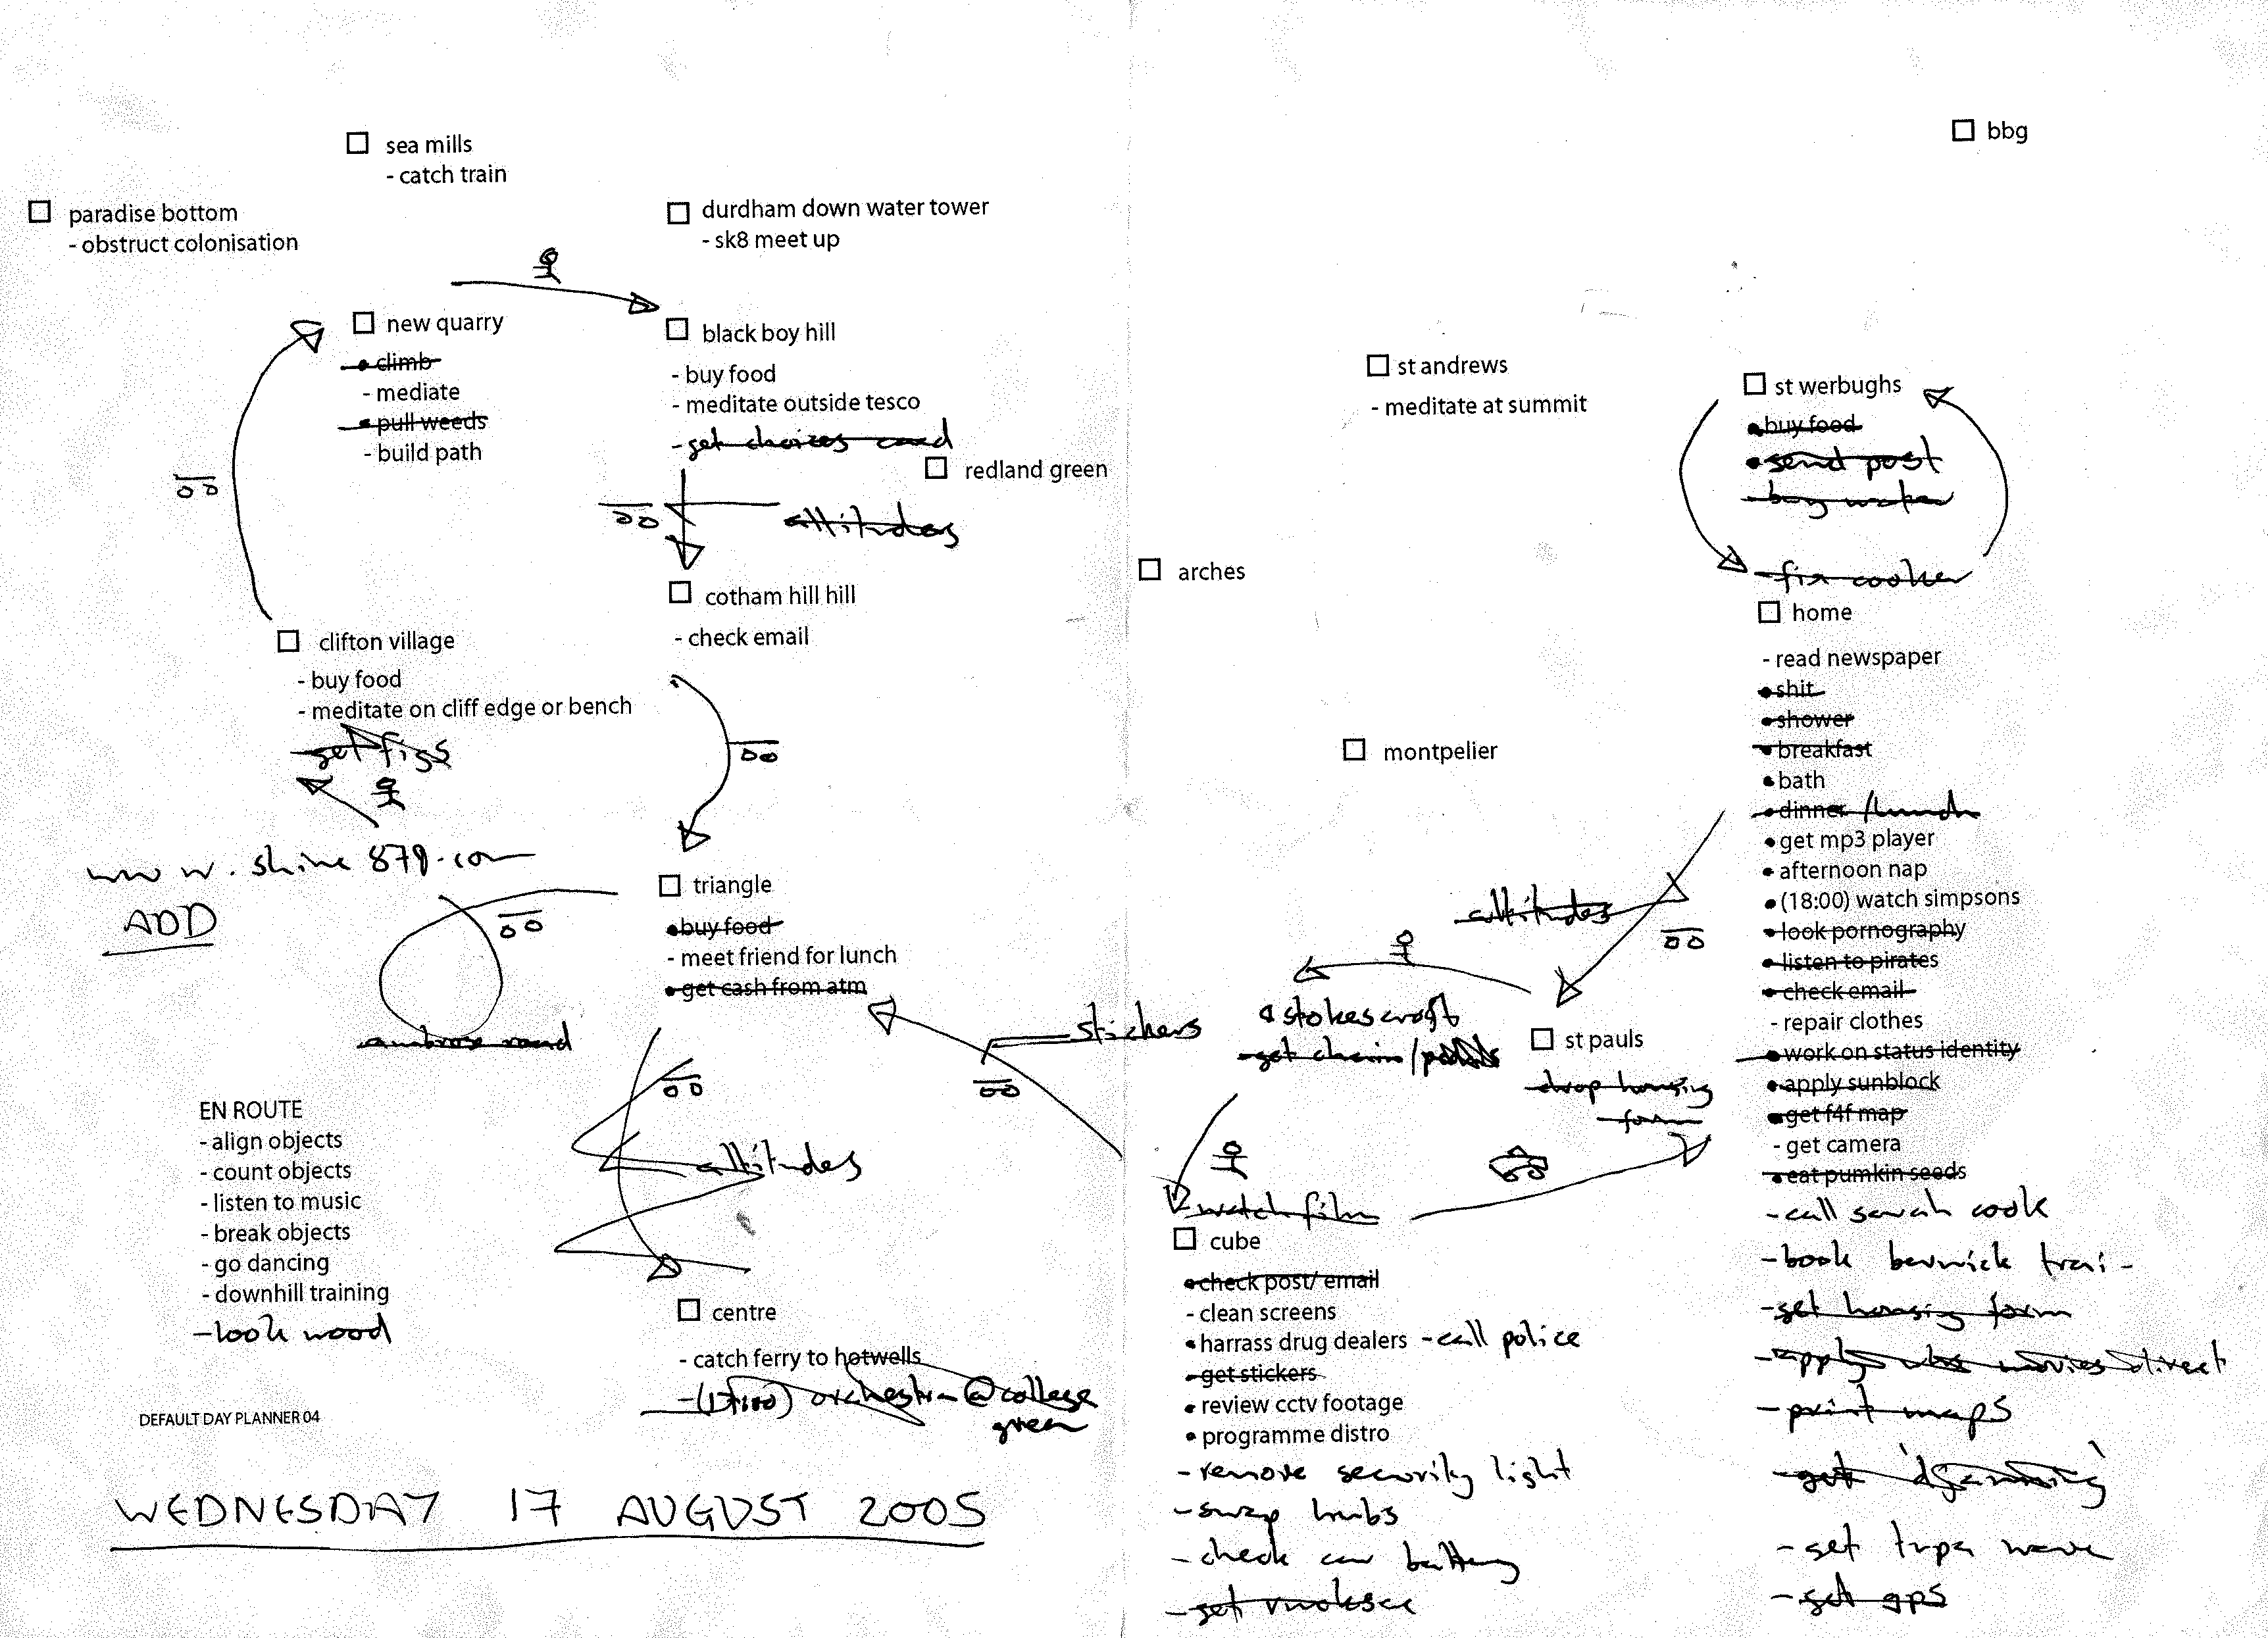 sea mills
- catch train
paradise bottom
- obstruct colonisation
durdham down water tower
- sk8 meet up
new quarry
• climb
- mediate
• pull weeds
- build path
black boy hill
- buy food
- meditate outside tesco
- get choices card
redland green
attitudes
cotham hill hill
- check email
clifton village
- buy food
- meditate on cliff edge or bench
- get figs
www.shine879.com
ADD
triangle
• buy food
- meet friend for lunch
• get cash from atm
ambrose road
attitudes
EN ROUTE
- align objects
- count objects
- listen to music
- break objects
- go dancing
- downhill training
- look wood
centre
- catch ferry to hotwells
- orchestra @ college
green
DEFAULT DAY PLANNER 04
WEDNESDAY 17 AUGUST 2005
bbg
st andrews
- meditate at summit
arches
montpelier
st werbughs
• buy food
• send post
- buy water
- fix cooker
attitudes
stickers
stokes croft
- get chain /
st pauls
drop housing
form
- watch film
cube
• check post/ email
- clean screens
• harrass drug dealers - call police
- get stickers
• review cctv footage
• programme distro
- remove security light
- swap hubs
- check car battery
- get
home
- read newspaper
• shit
• shower
• breakfast
• bath
• dinner /lunch
• get mp3 player
• afternoon nap
• (18:00) watch simpsons
• look pornography
• listen to pirates
• check email
- repair clothes
• work on status identity
• apply sunblock
• get f4f map
- get camera
• eat pumkin seeds
- call sarah cook
- book berwick trai-
- get housing form
- apply movies direct
- print maps
- get
- get
- get gps